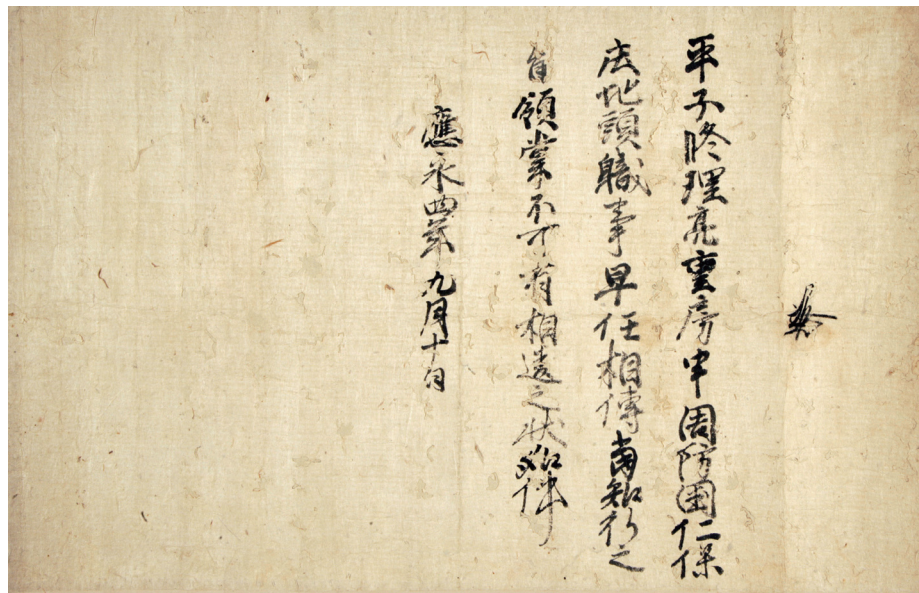 平子修理亮重房申周防国仁保
庄地頭職事早任相傳当知行之
旨領掌不可有相違之状如件
應永四年九月十日